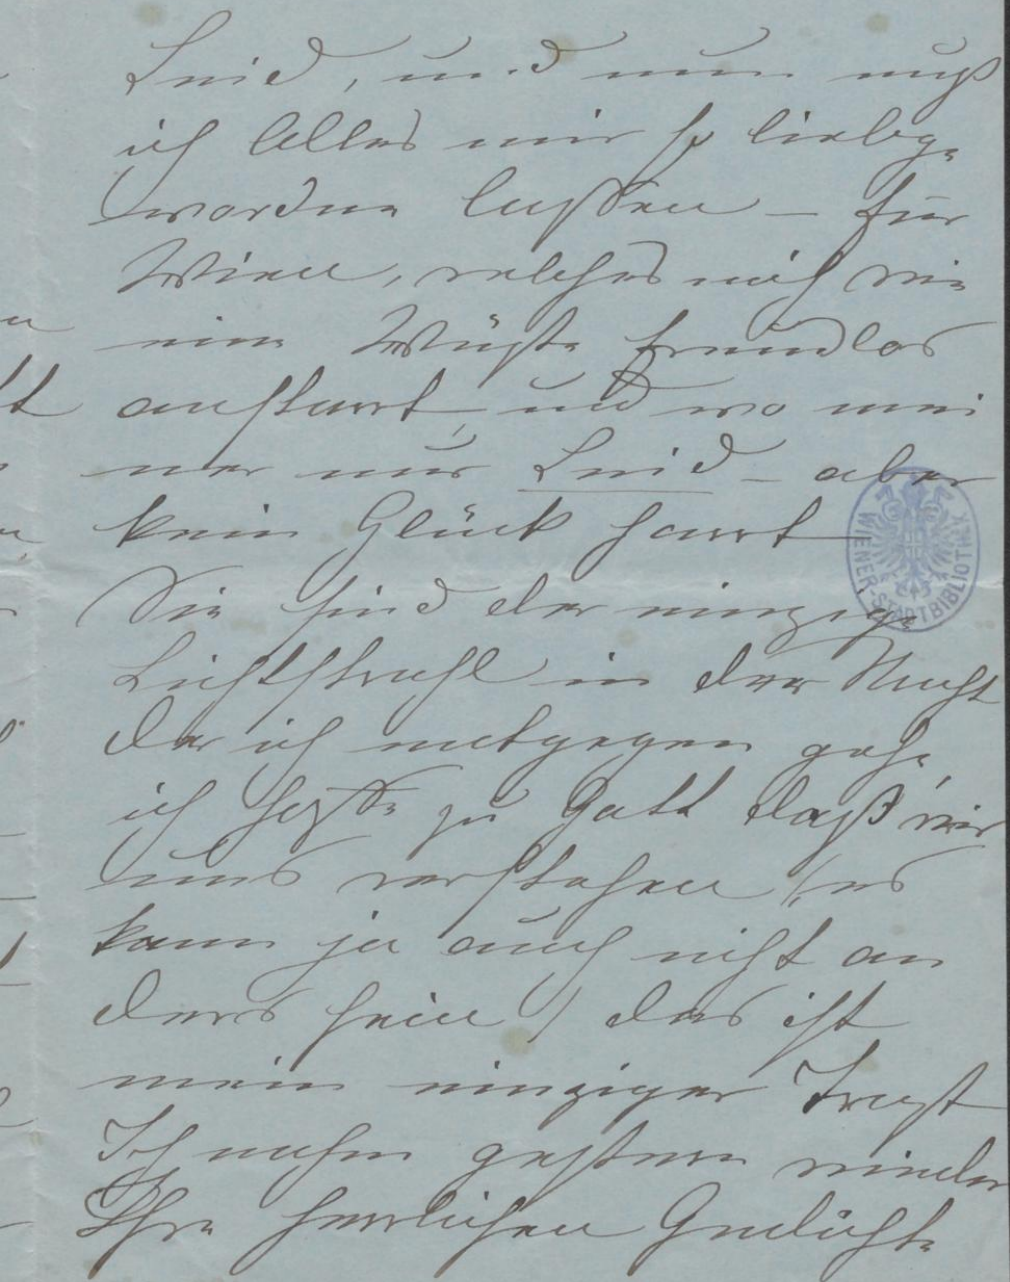 Leid, und nun muß
ich Alles mir so liebge
wordne lassen – für
Wien, welches mich wie
eine Wüste freudlos
anstarrt, und wo mei
ner nur Leid – aber
kein Glück harrt –
Sie sind der einzige
Lichtstrahl in der Nacht
der ich entgegen gehe,
ich hoffe zu Gott daß wir
uns verstehen (es
kann ja auch nicht an
ders sein) das ist
mein einziger Trost
Ich nahm gestern wieder
Ihre herrlichen Gedichte
WIENER-STADTBIBLIOTHEK